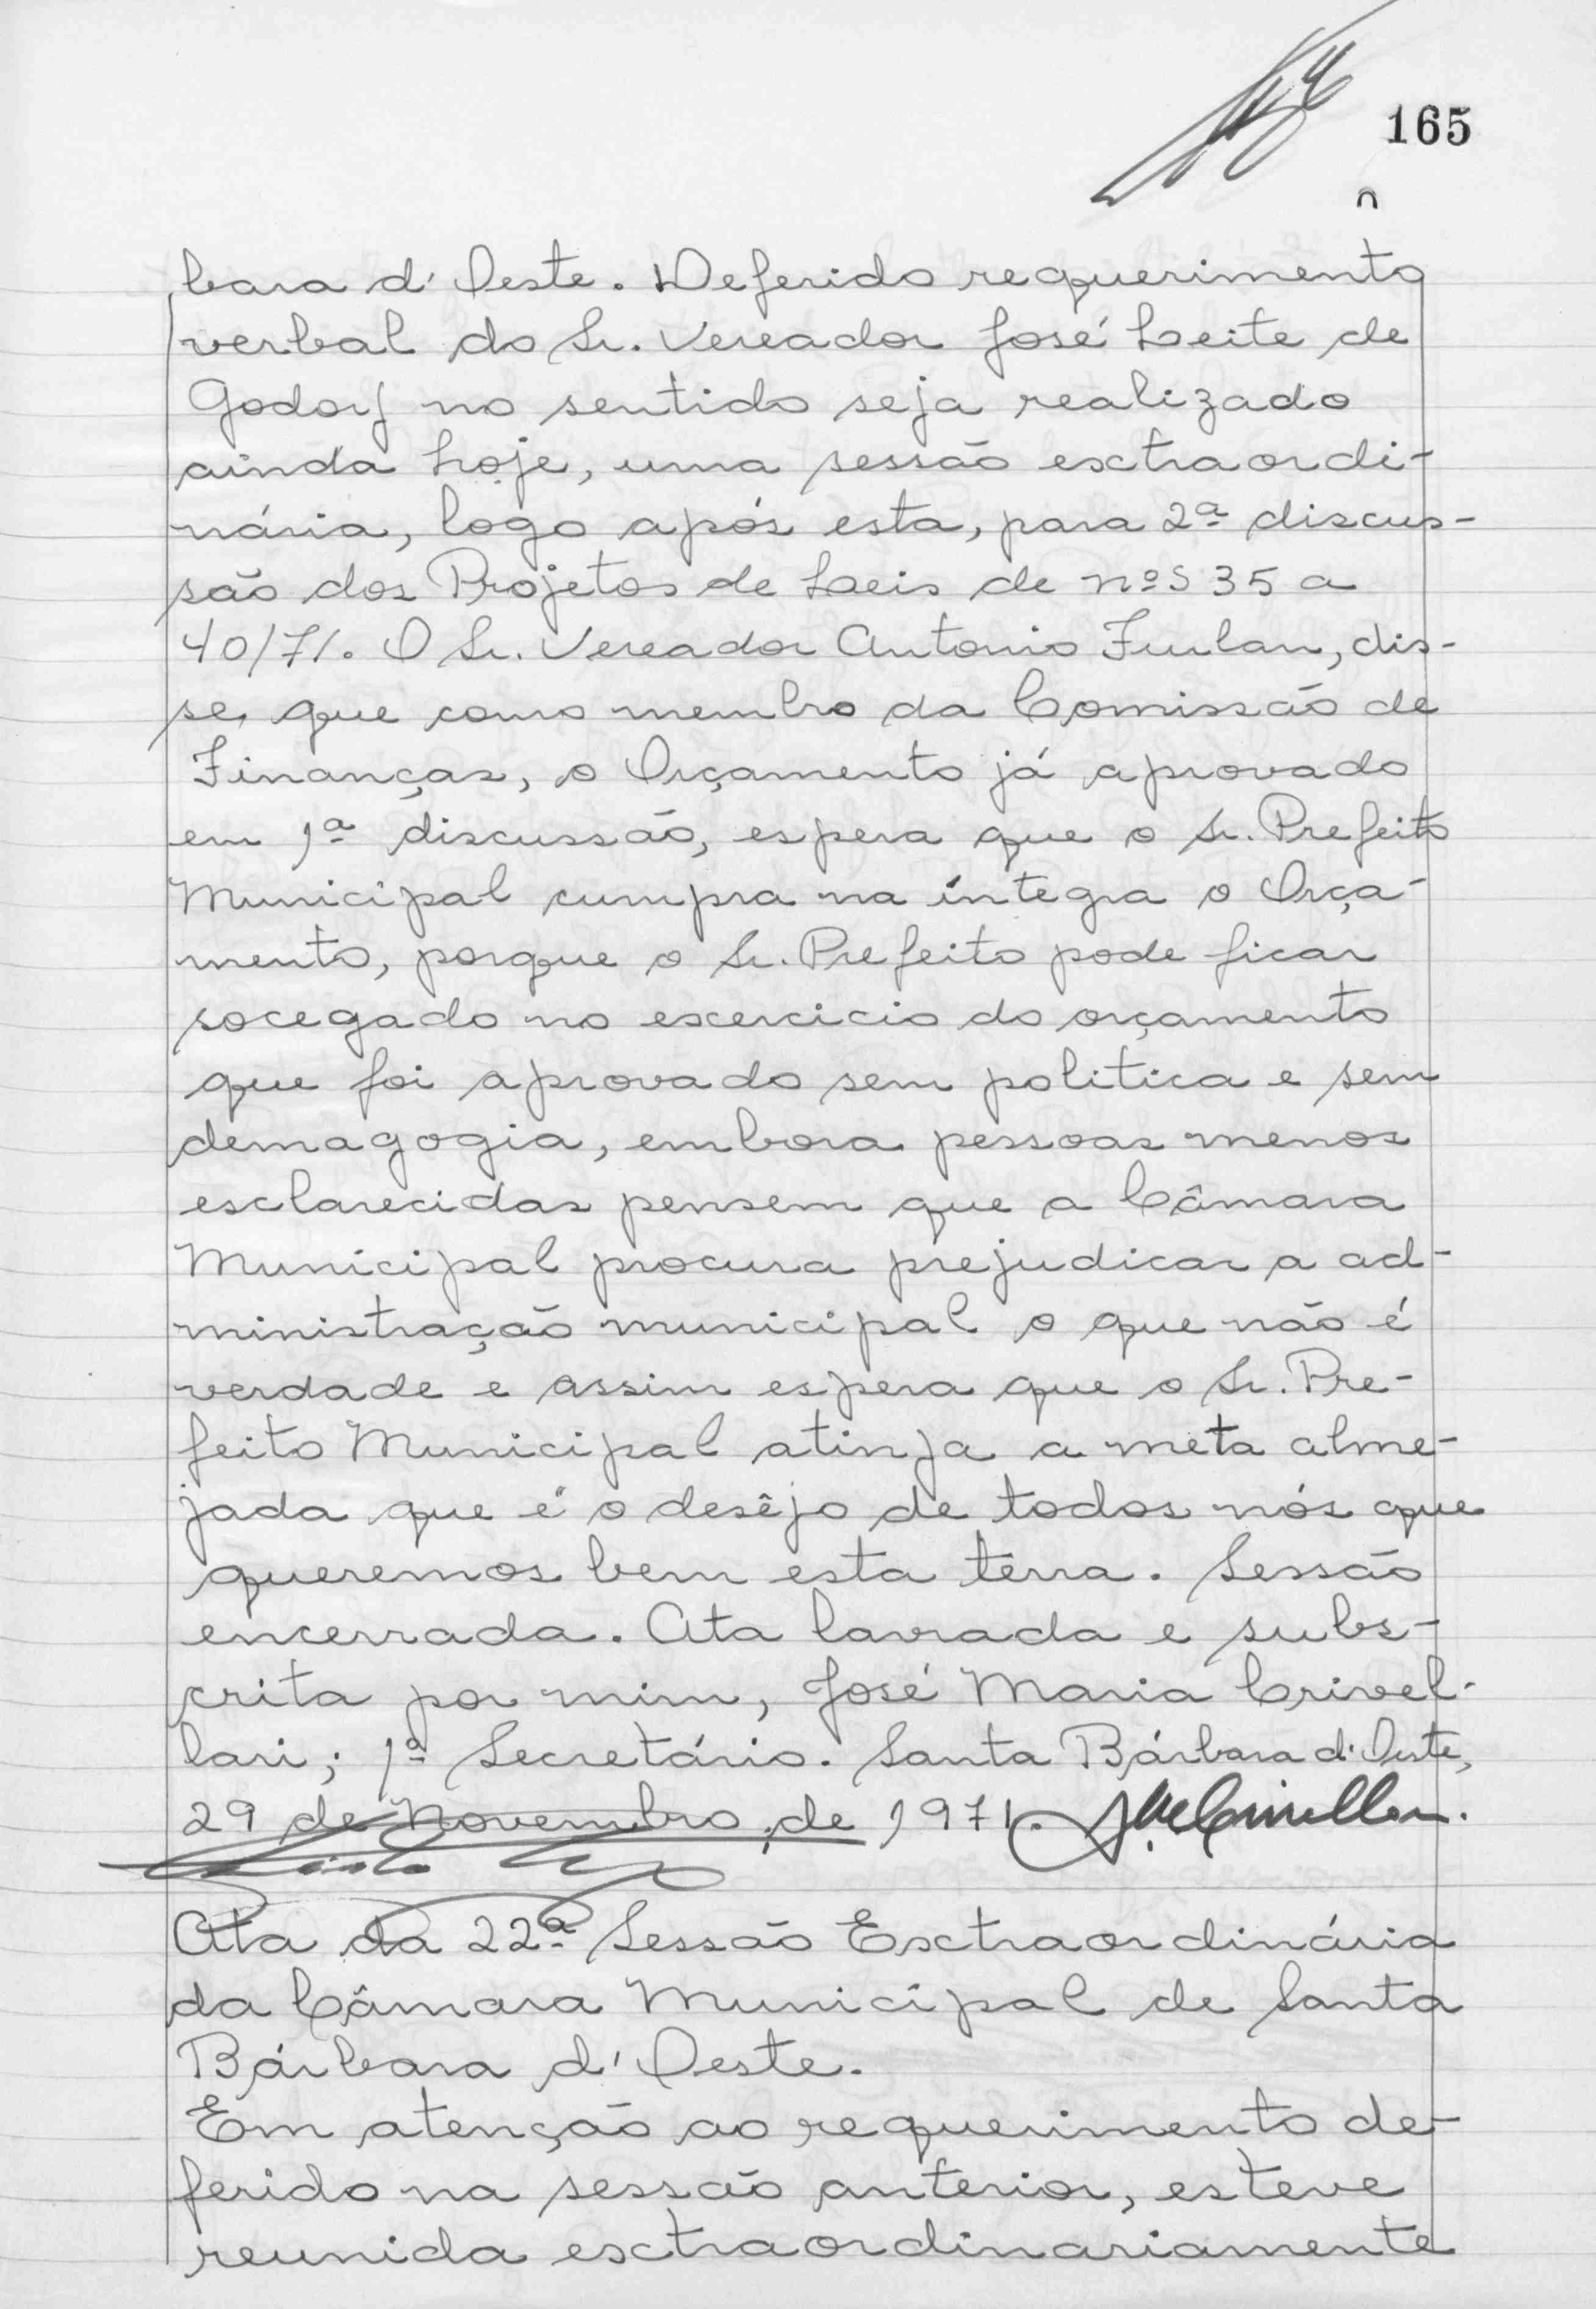 165
bara d'Oeste. Deferido requerimento
verbal do Sr. Vereador José Leite de
Godoy no sentido seja realizado
ainda hoje, uma sessão extraordi-
nária, logo após esta, para 2ª discus-
são dos Projetos de Leis de nºs 35 a
40/71. O Sr. Vereador Antonio Furlan, dis-
se, que como membro da Comissão de
Finanças, o Orçamento já aprovado
em 1ª discussão, espera que o Sr. Prefeito
Municipal cumpra na íntegra o Orça-
mento, porque o Sr. Prefeito pode ficar
socegado no exercicio do orçamento
que foi aprovado sem politica e sem
demagogia, embora pessoas menos
esclarecidas pensem que a Câmara
Municipal procura prejudicar a ad-
ministração municipal o que não é
verdade e assim espera que o Sr. Pre-
feito Municipal atinja a meta alme-
jada que é o desêjo de todos nós que
queremos bem esta terra. Sessão
encerrada. Ata lavrada e subs-
crita por mim, José Maria Crivel-
lari; 1º Secretário. Santa Bárbara d'Oeste,
29 de Novembro de 1971.
Ata da 22ª Sessão Extraordinária
da Câmara Municipal de Santa
Bárbara d'Oeste.
Em atenção ao requerimento de-
ferido na sessão anterior, esteve
reunida extraordinariamente